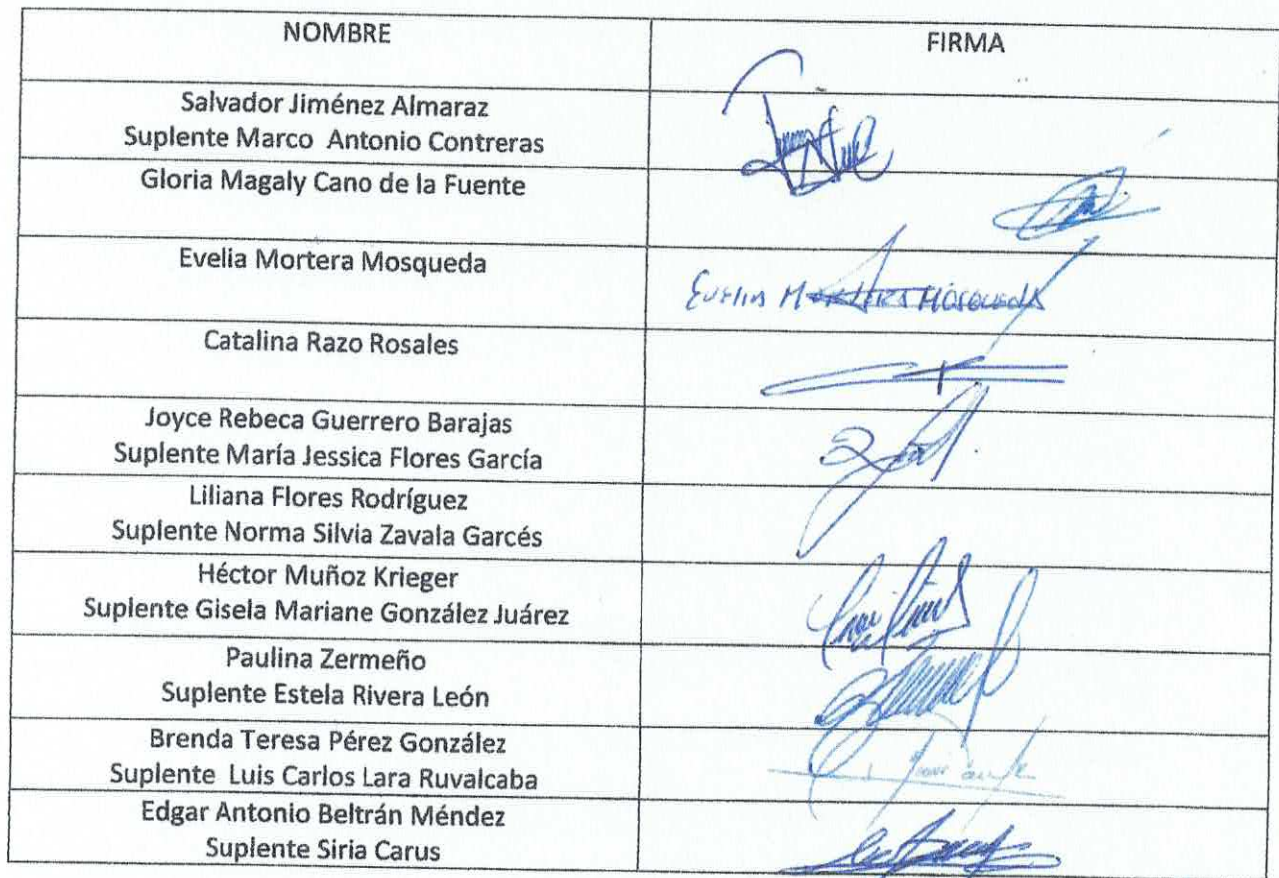 NOMBRE FIRMA
Salvador Jiménez Almaraz
Suplente Marco Antonio Contreras
Gloria Magaly Cano de la Fuente
Evelia Mortera Mosqueda Evelia Mortera Mosqueda
Catalina Razo Rosales
Joyce Rebeca Guerrero Barajas
Suplente María Jessica Flores García
Liliana Flores Rodríguez
Suplente Norma Silvia Zavala Garcés
Héctor Muñoz Krieger
Suplente Gisela Mariane González Juárez
Paulina Zermeño
Suplente Estela Rivera León
Brenda Teresa Pérez González
Suplente Luis Carlos Lara Ruvalcaba
Edgar Antonio Beltrán Méndez
Suplente Siria Carus